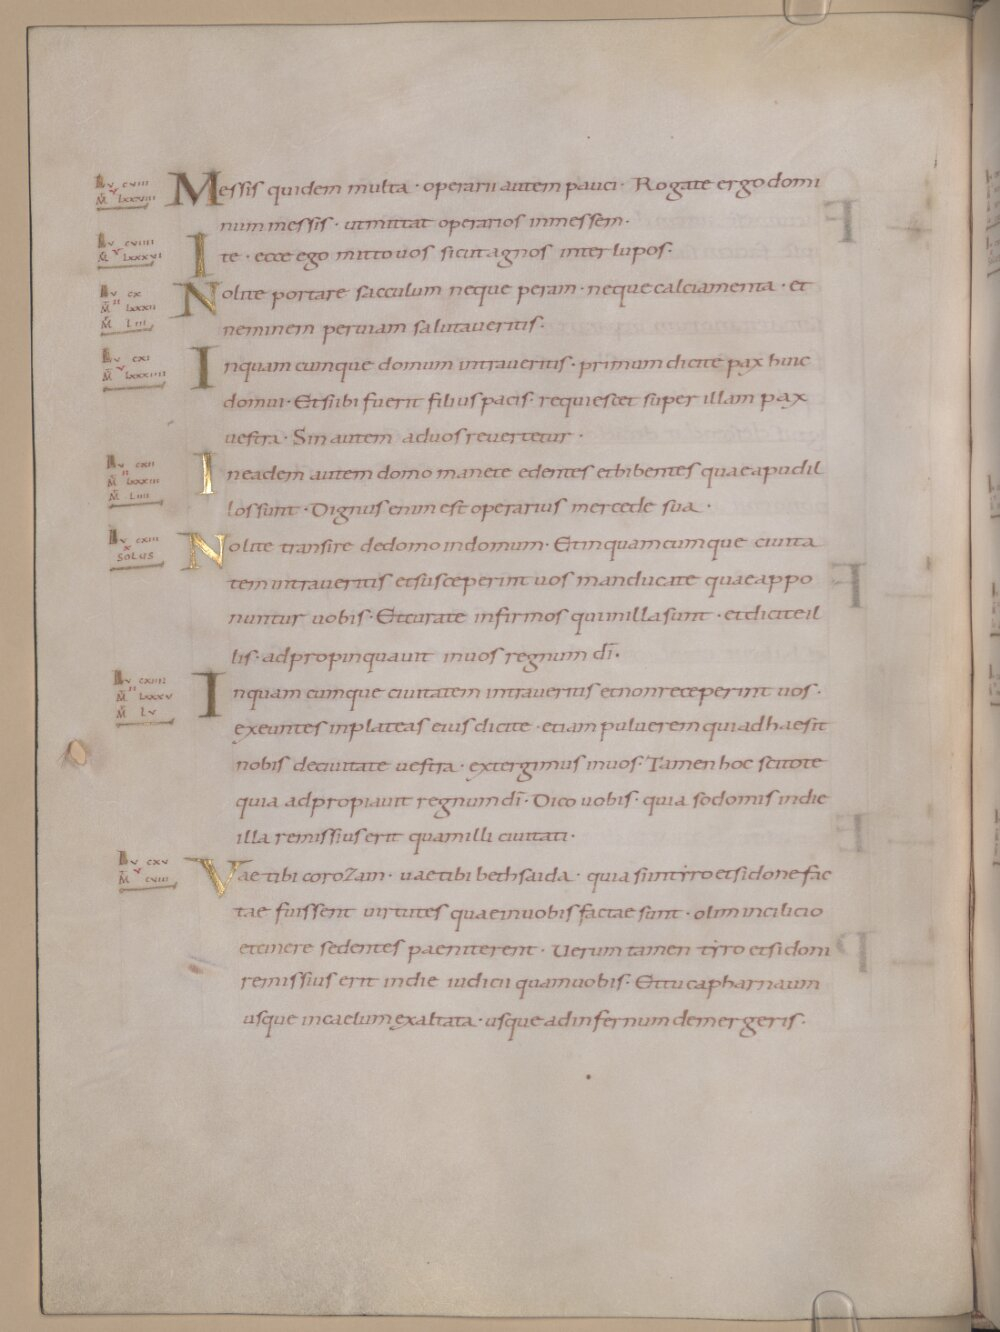 Lv cviii
Mt lxxviii
Messis quidem multa · operarii autem pauci · Rogate ergo domi
num messis · ut mittat operarios in messem ·
Lv cviiii
Mt lxxxvi
Ite · ecce ego mitto uos sicut agnos inter lupos ·
Lv cx
M lxxxii
M liii
Nolite portare sacculum neque peram · neque calciamenta · et
neminem per uiam salutaueritis ·
Lv cxi
M lxxxiiii
In quamcumque domum intraueritis · primum dicite pax huic
domui · Et si ibi fuerit filius pacis · requiescet super illam pax
uestra · Sin autem ad uos reuertetur ·
Lv cxii
M lxxxiii
M liiii
In eadem autem domo manete edentes et bibentes quae apud il
los sunt · Dignus enim est operarius mercede sua ·
Lv cxiii
x
SOLUS
Nolite transire de domo in domum · Et in quamcumque ciuita
tem intraueritis et susceperint uos manducate quae appo
nuntur uobis · Et curate infirmos qui in illa sunt · et dicite il
lis · adpropinquauit in uos regnum di ·
Lv cxiiii
M lxxxv
M lv
In quamcumque ciuitatem intraueritis et non receperint uos ·
exeuntes in plateas eius dicite · etiam puluerem qui adhaesit
nobis de ciuitate uestra · extergimus in uos · Tamen hoc scitote
quia adpropiauit regnum di · Dico uobis · quia sodomis in die
illa remissius erit quam illi ciuitati ·
Lv cxv
M cviii
Vae tibi corozain · uae tibi bethsaida · quia si in tyro et sidone fac
tae fuissent uirtutes quae in uobis factae sunt · olim in cilicio
et cinere sedentes paeniterent · Uerum tamen tyro et sidoni
remissius erit in die iudicii quam uobis · Et tu capharnaum
usque in caelum exaltata · usque ad infernum demergeris ·